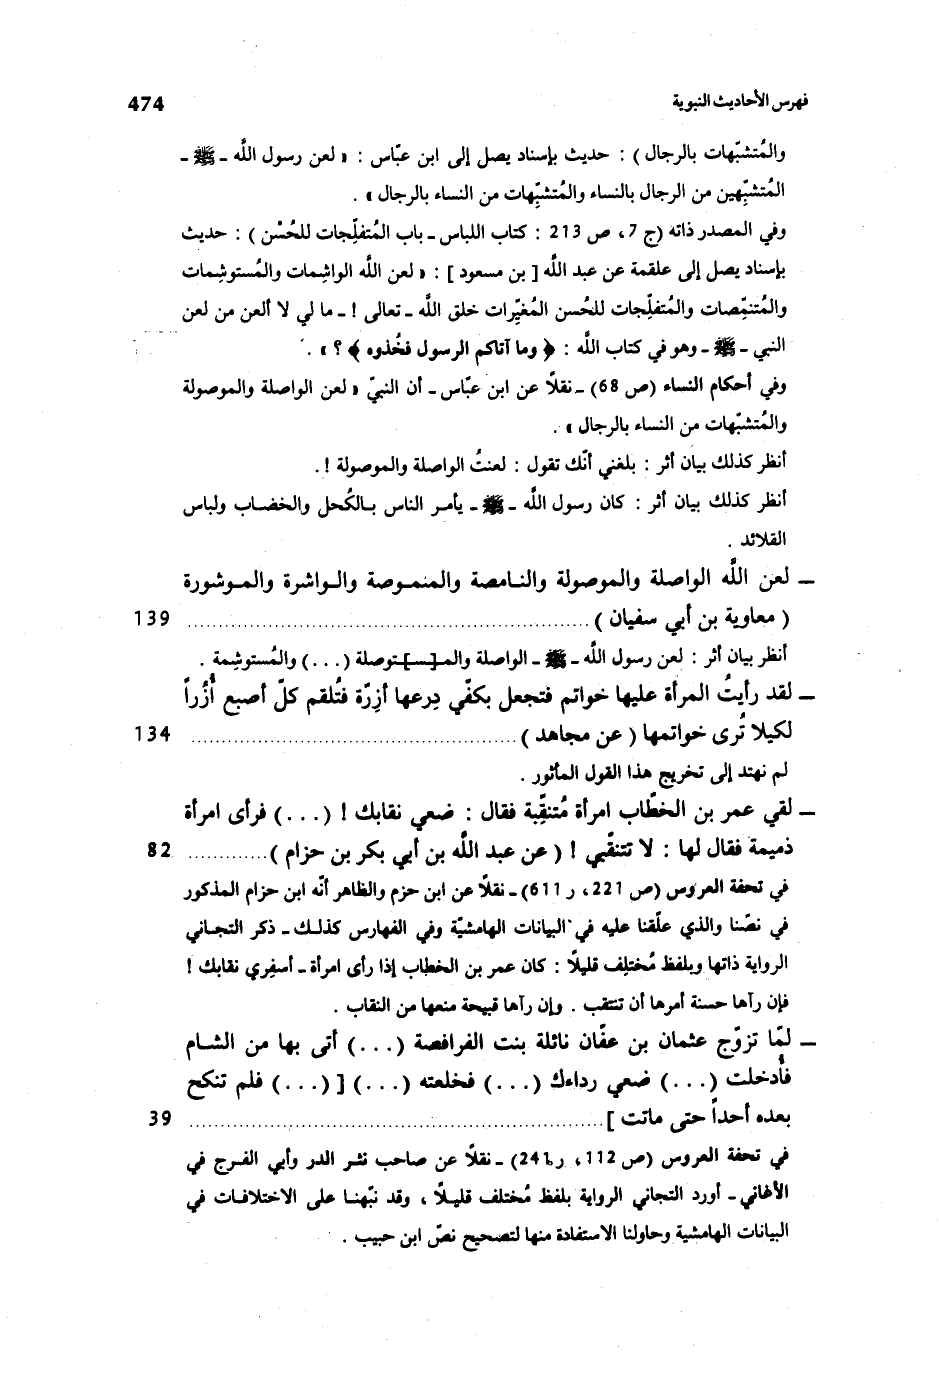 فهرس الأحاديث النبوية 474
والمُتشبّهات بالرجال ) : حديث بإسناد يصل إلى ابن عبّاس : « لعن رسول اللَّه ـ ﷺ ـ
المُتشبِّهين من الرجال بالنساء والمُتشبِّهات من النساء بالرجال » .
وفي المصدر ذاته (ج 7، ص 213 : كتاب اللباس ـ باب المُتفلِّجات للحُسْن ) : حديث
بإسناد يصل إلى علقمة عن عبد اللَّه [ بن مسعود ] : « لعن اللَّه الواشِمات والمُستوشِمات
والمُتنمِّصات والمُتفلِّجات للحُسن المُغيِّرات خلق اللَّه ـ تعالى ! ـ ما لي لا ألعن من لعن
النبي ـ ﷺ ـ وهو في كتاب اللَّه : ﴿ وما آتاكم الرسول فخُذوه ﴾ ؟ » .
وفي أحكام النساء (ص 68) ـ نقلًا عن ابن عبّاس ـ أن النبيّ « لعن الواصلة والموصولة
والمُتشبّهات من النساء بالرجال » .
أنظر كذلك بيان أثر : بلغني أنّك تقول : لعنتُ الواصلة والموصولة ! .
أنظر كذلك بيان أثر : كان رسول اللَّه ـ ﷺ ـ يأمر الناس بالكُحل والخضاب ولباس
القلائد .
ـ لعن اللَّه الواصلة والموصولة والنامصة والمنموصة والواشرة والموشورة
( معاوية بن أبي سفيان ) ........................................ 139
أنظر بيان أثر : لعن رسول اللَّه ـ ﷺ ـ الواصلة والمـ[ـسـ]ـتوصلة (...) والمُستوشِمة .
ـ لقد رأيتُ المرأة عليها خواتم فتجعل بكفّي دِرعها أزِرّة فتُلقم كلّ أصبع أُزُراً
لكيلا تُرى خواتمها ( عن مجاهد ) ........................................ 134
لم نهتد إلى تخريج هذا القول المأثور .
ـ لقي عمر بن الخطّاب امرأة مُتنقِّبة فقال : ضعي نقابك ! (...) فرأى امرأة
ذميمة فقال لها : لا تتنقّبي ! ( عن عبد اللَّه بن أبي بكر بن حزام ) ............ 82
في تحفة العروس (ص 221، ر 611) ـ نقلًا عن ابن حزم والظاهر أنّه ابن حزام المذكور
في نصّنا والذي علّقنا عليه في البيانات الهامشيّة وفي الفهارس كذلك ـ ذكر التجاني
الرواية ذاتها وبلفظ مُختلِف قليلًا : كان عمر بن الخطاب إذا رأى امرأة ـ أسفِري نقابك !
فإن رآها حسنة أمرها أن تنتقب . وإن رآها قبيحة منعها من النقاب .
ـ لمّا تزوّج عثمان بن عفّان نائلة بنت الفرافصة (...) أتى بها من الشام
فأُدخلت (...) ضعي رداءك (...) فخلعته (...) [ (...) فلم تنكح
بعده أحداً حتى ماتت ] ........................................ 39
في تحفة العروس (ص 112، ر 241) ـ نقلًا عن صاحب نثر الدر وأبي الفرج في
الأغاني ـ أورد التجاني الرواية بلفظ مُختلف قليلًا ، وقد نبّهنا على الاختلافات في
البيانات الهامشية وحاولنا الاستفادة منها لتصحيح نصّ ابن حبيب .